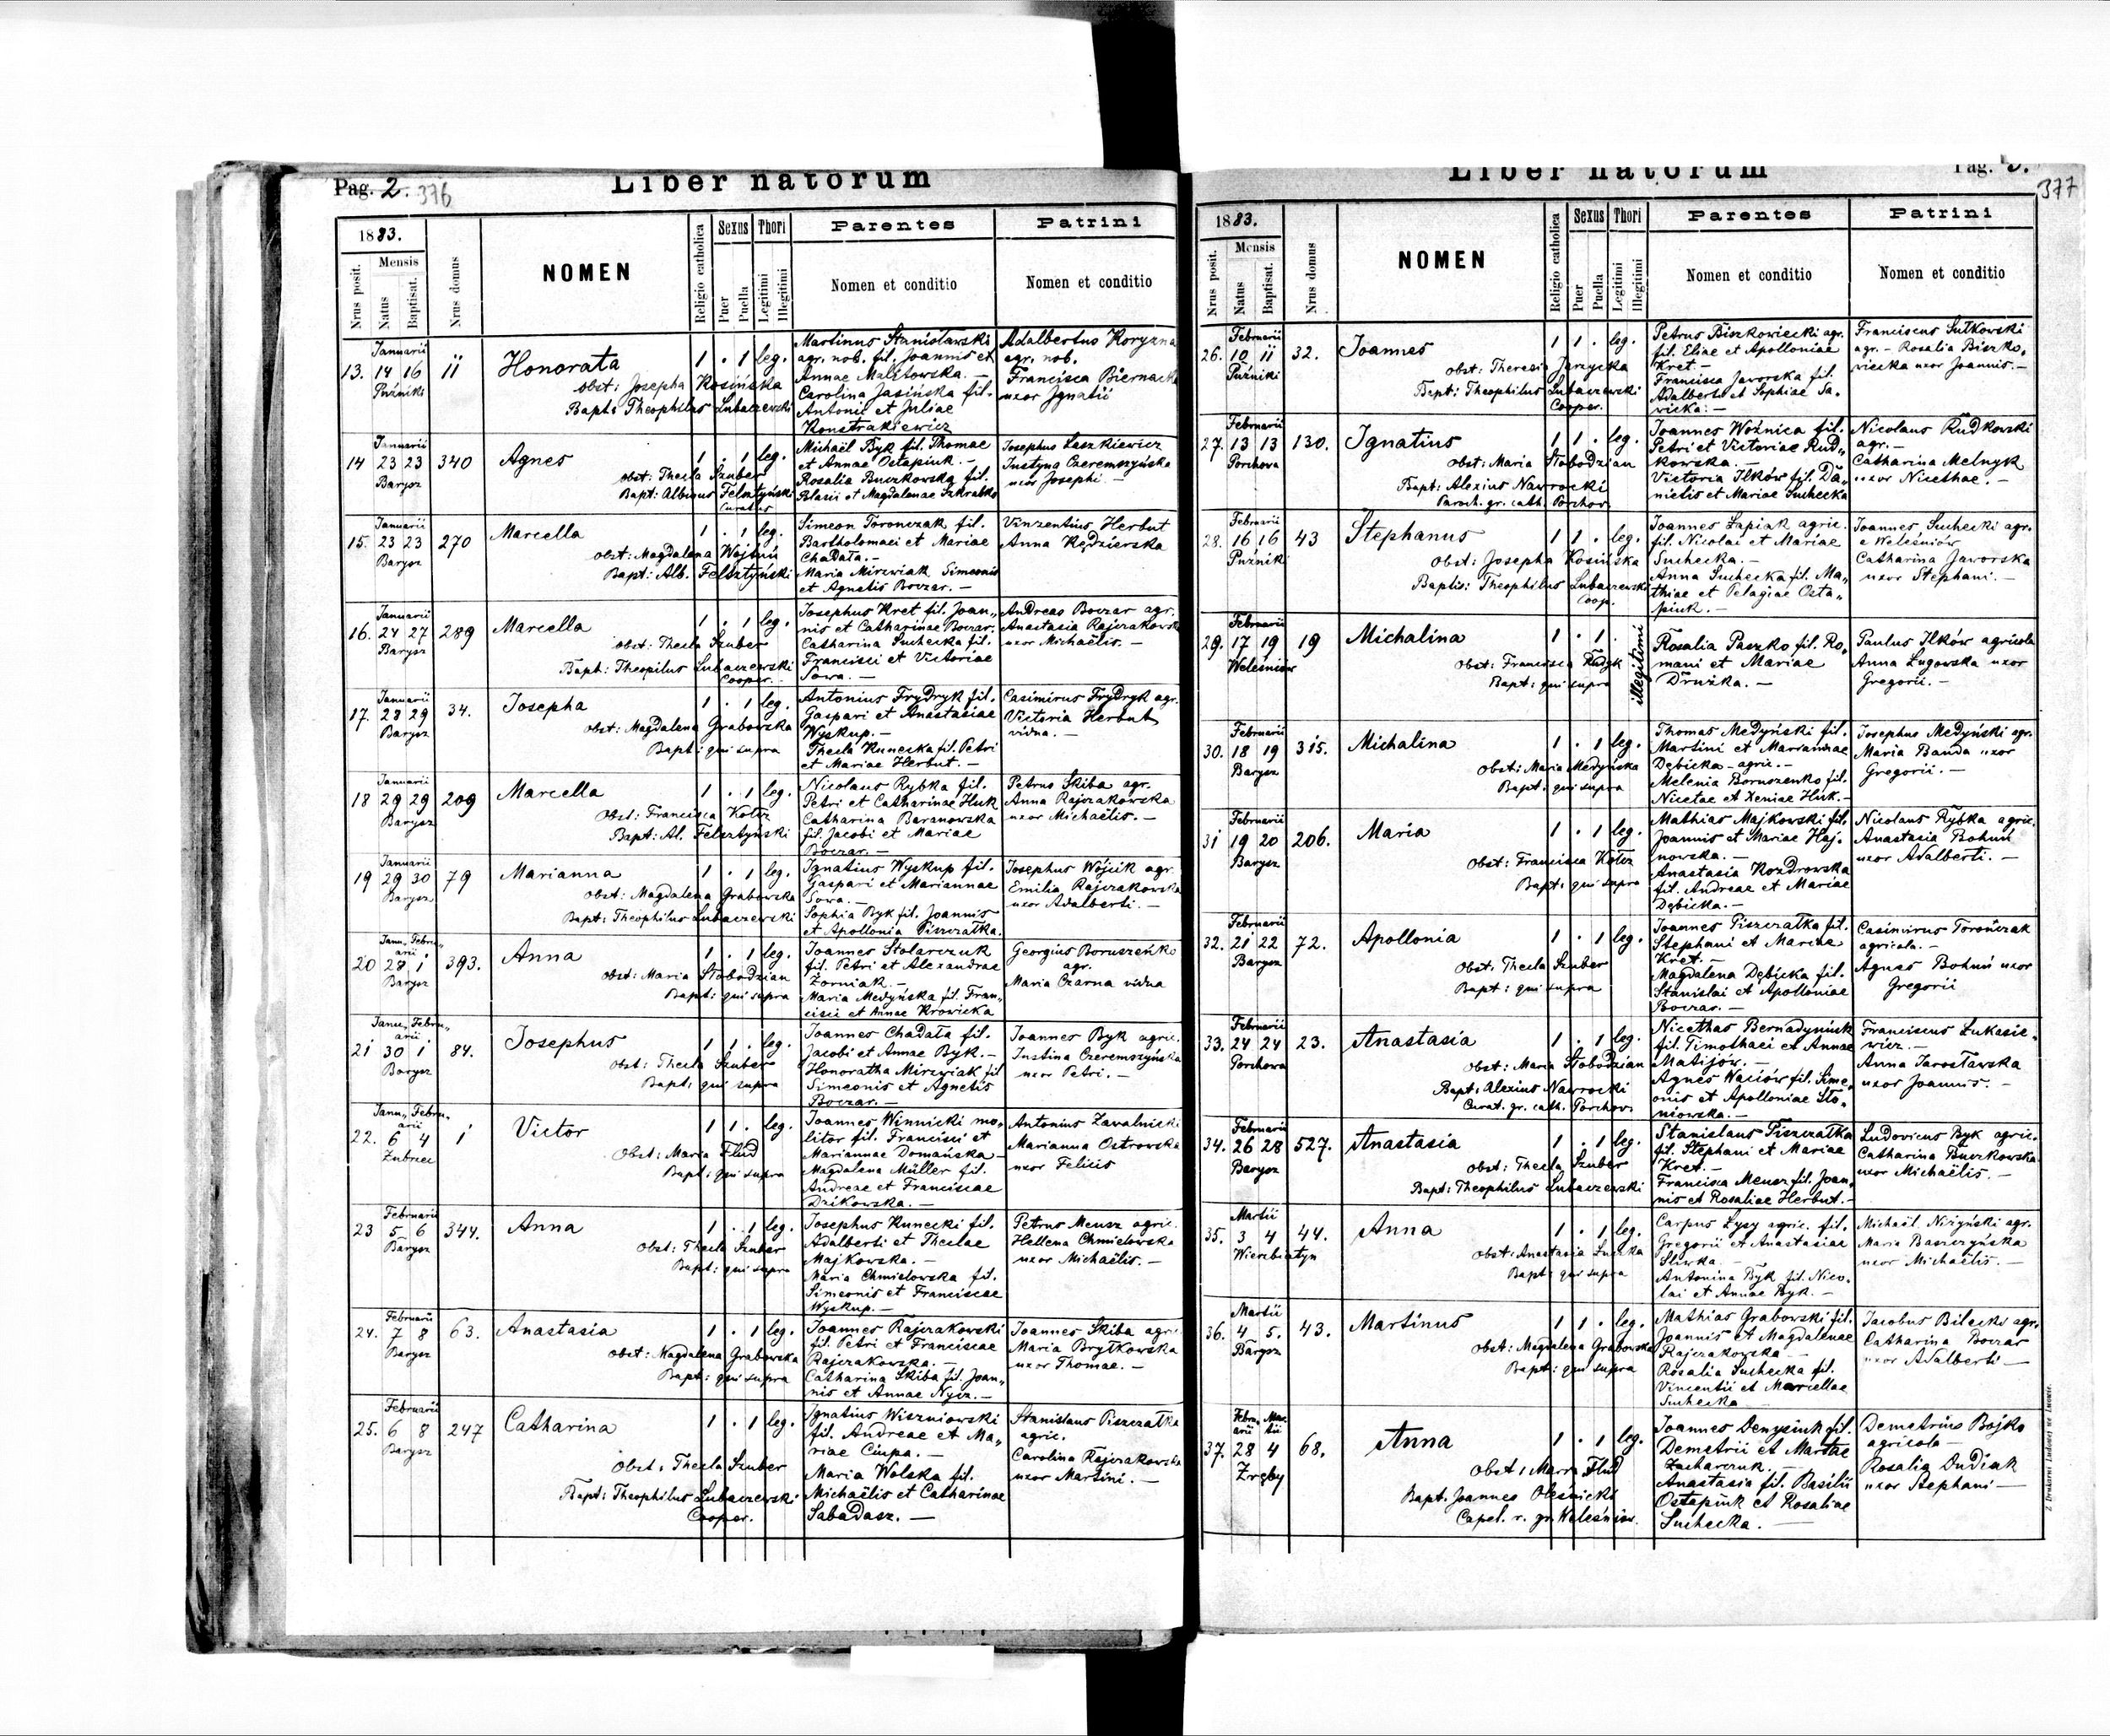 Pag. 2. 376
Liber natorum
1883.
Nrus posit.
Mensis
Natus
Baptisat.
Nrus domus
NOMEN
Religio catholica
Sexus
Puer
Puella
Thori
Legitimi
Illegitimi
Parentes
Nomen et conditio
Patrini
Nomen et conditio
13. Januarii 14 16 Puźniki
11
Honorata
obst: Josepha Kosińska
Bapt: Theophilus Lubaczewski
1 . 1 leg.
Martinus Stanisławski
agr. nob. fil. Joannis et
Annae
Carolina Jasińska fil.
Antonii et Juliae
Adalbertus Koryzna
agr. nob.
Francisca Biernacka
uxor Ignatii
14 Januarii 23 23 Barysz
340
Agnes
obst: Thecla Szuber
Bapt: Albinus Felsztyński
Curatus
1 . 1 leg.
Michaël Byk fil. Thomae
et Annae Ostapiuk. —
Rosalia Buczkowska fil.
Blasii et Magdalenae Szkrabko
Josephus Laszkiewicz
Justyna Czeremszyńska
uxor Josephi. —
15. Januarii 23 23 Barysz
270
Marcella
obst: Magdalena Wojtuń
Bapt: Alb. Felsztyński
1 . 1 leg.
Simeon Toronczak fil.
Bartholomaei et Mariae
Chadała. —
Maria Mirzwiak Simeonis
et Agnetis Boczar. —
Vinzentius Herbut
Anna Kędzierska
16. Januarii 24 27 Barysz
289
Marcella
obst: Thecla Szuber
Bapt: Theopilus Lubaczewski
Cooper. —
1 . 1 leg.
Josephus Kret fil. Joan„
nis et Catharinae Boczar.
Catharina Suchecka fil.
Francisci et Victoriae
Sowa. —
Andreas Boczar agr.
Anastasia Rajczakowska
uxor Michaëlis. —
17. Januarii 28 29 Barysz
34.
Josepha
obst: Magdalena Grabowska
Bapt: qui supra
1 . 1 leg.
Antonius Frydryk fil.
Gaspari et Anastasiae
Wyskup. —
Thecla Kunecka fil. Petri
et Mariae Herbut. —
Casimirus Frydryk agr.
Victoria Herbut
vidua. —
18 Januarii 29 29 Barysz
209
Marcella
Obst: Francisca Kotz
Bapt: Al. Felsztyński
1 . 1 leg.
Nicolaus Rybka fil.
Petri et Catharinae Huk
Catharina Baranowska
fil. Jacobi et Mariae
Boczar. —
Petrus Skiba agr.
Anna Rajczakowska
uxor Michaëlis. —
19 Januarii 29 30 Barysz
79
Marianna
Obst: Magdalena Grabowska
Bapt: Theophilus Lubaczewski
1 . 1 leg.
Ignatius Wyskup fil.
Gaspari et Mariannae
Sowa. —
Sophia Byk fil. Joannis
et Apollonia Piszczatka.
Josephus Wójcik agr.
Emilia Rajczakowska
uxor Adalberti. —
20 Janu„ Febru„ arii 28 1 Barysz
393.
Anna
Obst: Maria Słobodzian
Bapt: qui supra
1 . 1 leg.
Joannes Stolarczuk
fil. Petri et Alexandrae
Żorniak. —
Maria Medyńska fil. Fran„
cisci et Annae Krowicka
Georgius Boruszeńko
agr.
Maria Czarna vidua
21 Janu„ Febru„ arii 30 1 Barysz
84.
Josephus
Obst: Thecla Szuber
Bapt: qui supra
1 1 . leg.
Joannes Chadała fil.
Jacobi et Annae Byk. —
Honoratha Mirzwiak fil
Simeonis et Agnetis
Boczar. —
Joannes Byk agric.
Justina Czeremszyńska
uxor Petri. —
22. Janu„ Febru„ arii 6 4 Zubrzec
1
Victor
Obst: Maria Flud
Bapt: qui supra
1 1 . leg.
Joannes Winnicki mo„
litor fil. Francisci et
Mariannae Domańska —
Magdalena Müller fil.
Andreae et Franciscae
Dzikowska. —
Antonius Zavalnicki
Marianna Ostrovska
uxor Felicis
23 Februarii 5 6 Barysz
344.
Anna
Obst: Thecla Szuber
Bapt: qui supra
1 . 1 leg.
Josephus Kunecki fil.
Adalberti et Theclae
Majkowska. —
Maria Chmielowska fil.
Simeonis et Franciscae
Wyskup. —
Petrus Meusz agric.
Hellena Chmielowska
uxor Michaëlis. —
24. Februarii 7 8 Barysz
63.
Anastasia
Obst: Magdalena Grabowska
Bapt: qui supra
1 . 1 leg.
Joannes Rajczakowski
fil. Petri et Franciscae
Rajczakowska. —
Catharina Skiba fil. Joan„
nis et Annae Nycz. —
Joannes Skiba agric.
Maria Brytkowska
uxor Thomae. —
25. Februarii 6 8 Barysz
247
Catharina
Obst: Thecla Szuber
Bapt: Theophilus Lubaczewski
Cooper.
1 . 1 leg.
Ignatius Wiszniowski
fil. Andreae et Ma„
riae Ciupa. —
Maria Wolska fil.
Michaëlis et Catharinae
Sabadasz. —
Stanislaus Piszczatka
agric.
Carolina Rajczakowska
uxor Martini. —
Liber natorum
Pag. 3.
377
1883.
Nrus posit.
Mensis
Natus
Baptisat.
Nrus domus
NOMEN
Religio catholica
Sexus
Puer
Puella
Thori
Legitimi
Illegitimi
Parentes
Nomen et conditio
Patrini
Nomen et conditio
26. Februarii 10 11 Puźniki
32.
Joannes
obst: Theresia Jarzycka
Bapt: Theophilus Lubaczewski
Cooper.
1 1 . leg.
Petrus Biszkowiecki agr.
fil. Eliae et Apolloniae
Kret. —
Francisca Javorska fil.
Adalberti et Sophiae Sa„
wicka. —
Franciscus Sutkowski
agr. — Rosalia Biszko„
wiecka uxor Joannis. —
27. Februarii 13 13 Porchova
130.
Ignatius
obst: Maria Słobodzian
Bapt: Alexius Nawrocki
Paroch. gr. cath. Porchov.
1 1 . leg.
Joannes Woźnica fil.
Petri et Victoriae Rud„
kowska. —
Victoria Ilków fil. Da„
nielis et Mariae Suchecka
Nicolaus Rudkowski
agr. —
Catharina Melnyk
uxor Nicethae. —
28. Februarii 16 16 Puźniki
43
Stephanus
Obst: Josepha Kosińska
Baptis: Theophilus Lubaczewski
Coop.
1 1 . leg.
Joannes Łapiak agric.
fil. Nicolai et Mariae
Suchecka. —
Anna Suchecka fil. Ma„
thiae et Pelagiae Osta„
piuk. —
Joannes Suchecki agr.
e Weleśniów
Catharina Jaworska
uxor Stephani. —
29. Februarii 17 19 Weleśniów
19
Michalina
Obst: Francisca Fedyk
Bapt: qui supra
1 . 1
illegitimi
Rosalia Paszko fil. Ro„
mani et Mariae
Drużka. —
Paulus Ilków agricola
Anna Ługowska uxor
Gregorii. —
30. Februarii 18 19 Barysz
315.
Michalina
Obst: Maria Medyńska
Bapt: qui supra
1 . 1 leg.
Thomas Medyński fil.
Martini et Mariannae
Dębicka — agric. —
Melenia Boruszenko fil.
Nicetae et Xeniae Huk. —
Josephus Medyński agr.
Maria Banda uxor
Gregorii. —
31 Februarii 19 20 Barysz
206.
Maria
Obst: Francisca Kotz
Bapt: qui supra
1 . 1 leg.
Mathias Majkowski fil.
Joannis et Mariae Haj„
nowska. —
Anastasia Kozdrowska
fil. Andreae et Mariae
Dębicka. —
Nicolaus Rybka agric.
Anastasia Bohuń
uxor Adalberti. —
32. Februarii 21 22 Barysz
72.
Apollonia
Obst: Thecla Szuber
Bapt: qui supra
1 . 1 leg.
Joannes Piszczatka fil.
Stephani et Mariae
Kret. —
Magdalena Dębicka fil.
Stanislai et Apolloniae
Boczar. —
Casimirus Torończak
agricola. —
Agnes Bohuń uxor
Gregorii
33. Februarii 24 24 Porchowa
23.
Anastasia
Obst: Maria Słobodzian
Bapt: Alexius Nawrocki
Curat. gr. cath. Porchov.
1 . 1 leg.
Nicethas Bernadyniuk
fil. Timothaei et Annae
Matijów. —
Agnes Waców fil. Sime„
onis et Apolloniae Sło„
niowska. —
Franciscus Łukasie„
wicz. —
Anna Jarosławska
uxor Joannis. —
34. Februarii 26 28 Barysz
527.
Anastasia
Obst: Thecla Szuber
Bapt: Theophilus Lubaczewski
1 . 1 leg.
Stanislaus Piszczatka
fil. Stephani et Mariae
Kret. —
Francisca Meusz fil. Joan„
nis et Rosaliae Herbut. —
Ludovicus Byk agric.
Catharina Buczkowska
uxor Michaëlis. —
35. Martii 3 4 Wierzbiatyn
44.
Anna
Obst: Anastasia Łuczka
Bapt: qui supra
1 . 1 leg.
Carpus Łysy agric. fil.
Gregorii et Anastasiae
Śliwka. —
Antonina Byk fil. Nico„
lai et Annae Byk. —
Michaël Niżyński agr.
Maria Baszczyńska
uxor Michaëlis. —
36. Martii 4 5. Barysz
43.
Martinus
Obst: Magdalena Grabowska
Bapt: qui supra
1 1 . leg.
Mathias Grabowski fil.
Joannis et Magdalenae
Rajczakowska —
Rosalia Suchecka fil.
Vincentii et Marcellae
Suchecka
Jacobus Bilecki agr.
Catharina Boczar
uxor Adalberti —
37. Febru„ arii Mar„ tii 28 4 Zręby
68.
Anna
Obst: Maria Flud
Bapt: Joannes Oleśnicki
Capel. r. gr. Weleśniów.
1 . 1 leg.
Joannes Denysiuk fil.
Demetrii et Marthae
Zacharczuk. —
Anastasia fil. Basilii
Ostapiuk et Rosaliae
Suchecka. —
Demetrius Bojko
agricola —
Rosalia Dudiak
uxor Stephani —
Z Drukarni Ludowej we Lwowie.